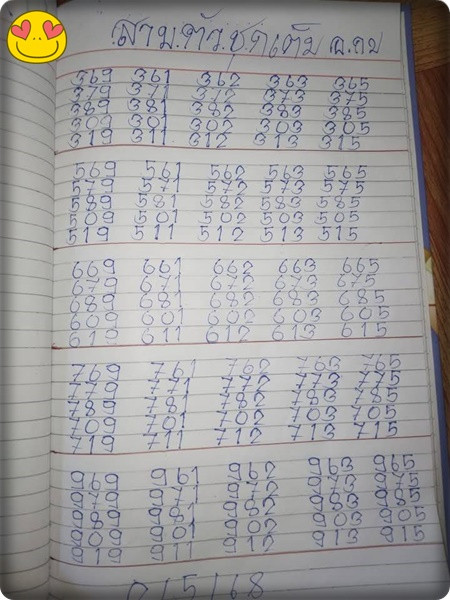 สาม.ตัว.ชุดเต็ม อ.กบ
369 361 362 363 365
379 371 372 373 375
389 381 382 383 385
309 301 302 303 305
319 311 312 313 315
569 561 562 563 565
579 571 572 573 575
589 581 582 583 585
509 501 502 503 505
519 511 512 513 515
669 661 662 663 665
679 671 672 673 675
689 681 682 683 685
609 601 602 603 605
619 611 612 613 615
769 761 762 763 765
779 771 772 773 775
789 781 782 783 785
709 701 702 703 705
719 711 712 713 715
969 961 962 963 965
979 971 972 973 975
989 981 982 983 985
909 901 902 903 905
919 911 912 913 915